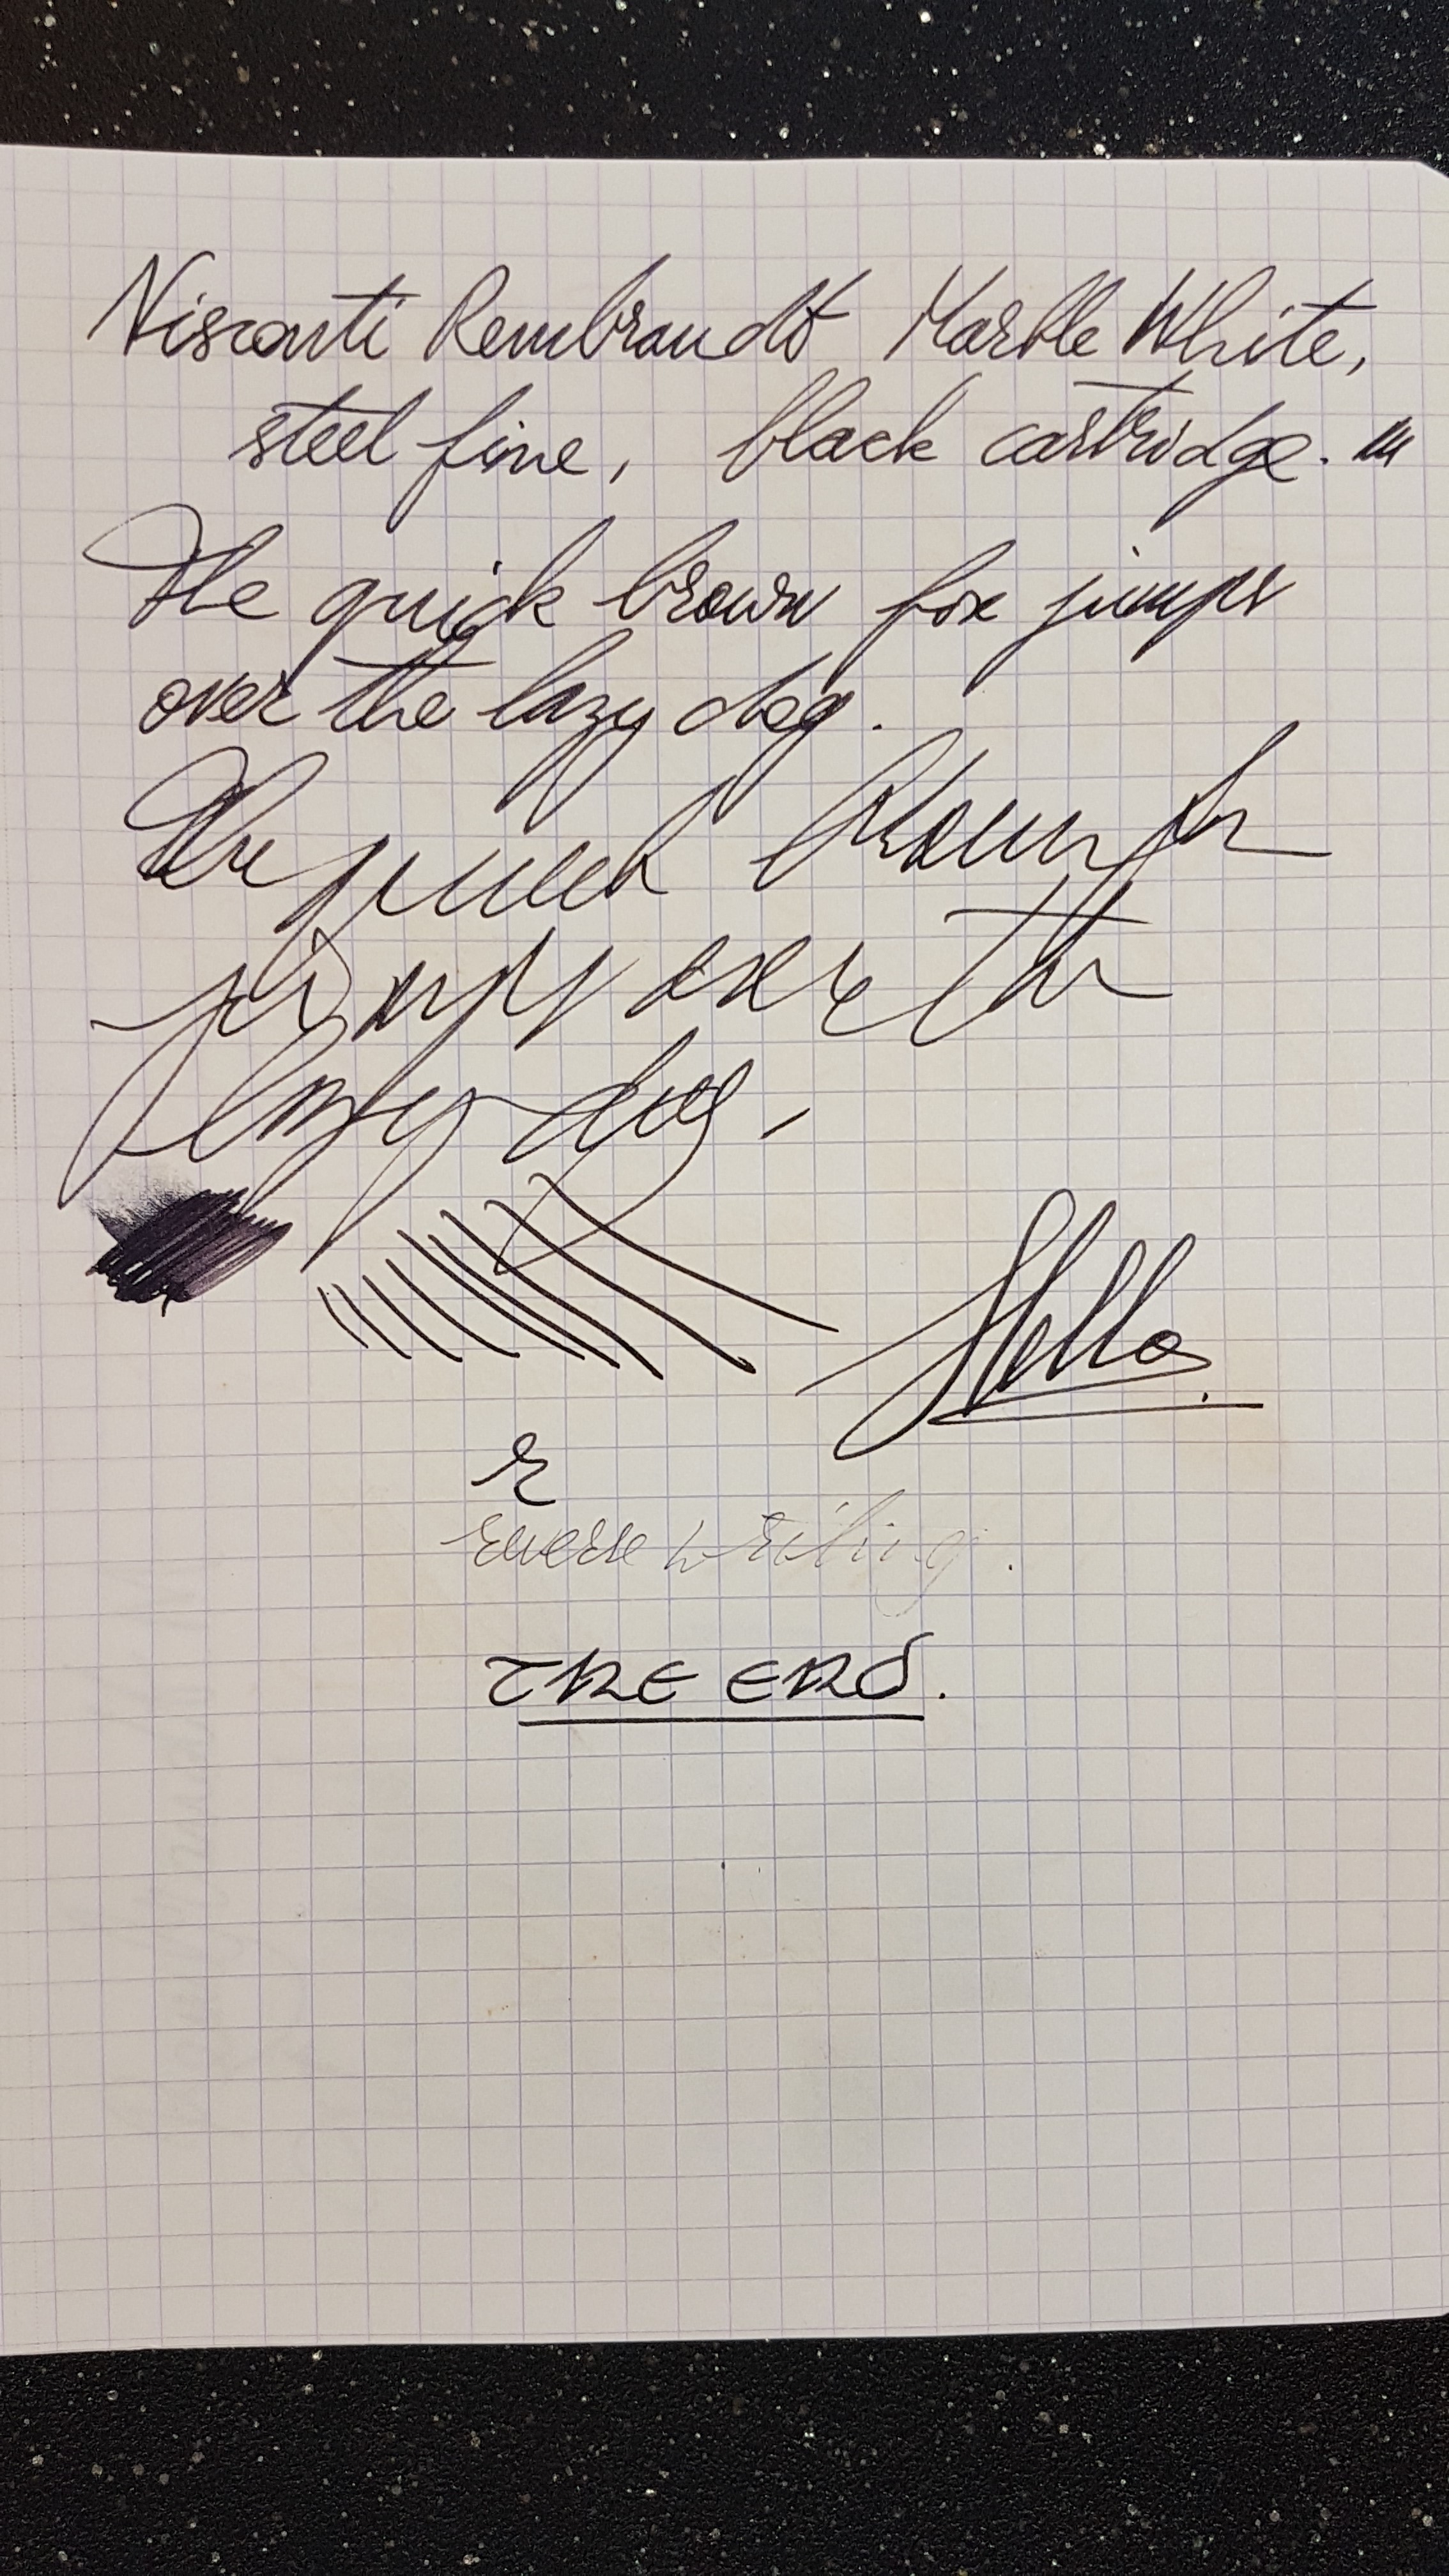 Visconti Rembrandt Marble White,
steel fine, black cartridge.
The quick brown fox jumps
over the lazy dog.
The quick brown fox
jumps over the
lazy dog.
Hello.
r
reverse writing.
THE END.